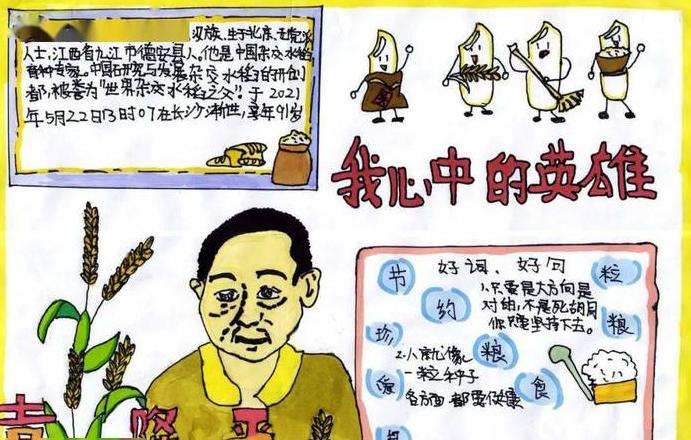 汉族、生于北京、无党派
人士,江西省九江市德安县人,他是中国杂交水稻
育种专家。中国研究与发展杂交水稻的开创
者,被誉为“世界杂交水稻之父”。于2021
年5月22日13时07在长沙逝世,享年91岁
我心中的英雄
好词、好句
节约
珍爱粮食
粒粮
1.只要是大方向是
对的,不是死胡同
你只要坚持下去。
2.人就像
一粒种子
各方面都要健康
袁隆平